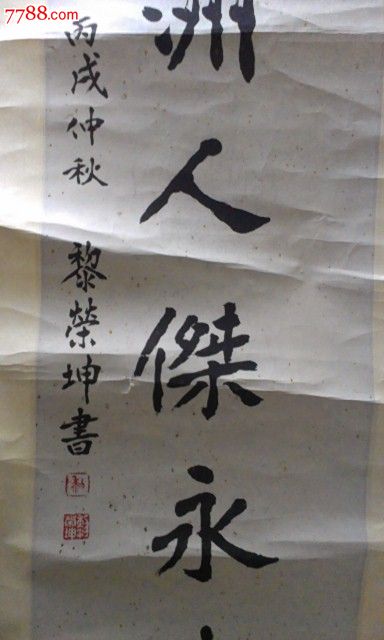 7788.com
洲人傑永
丙戌仲秋 黎榮坤書